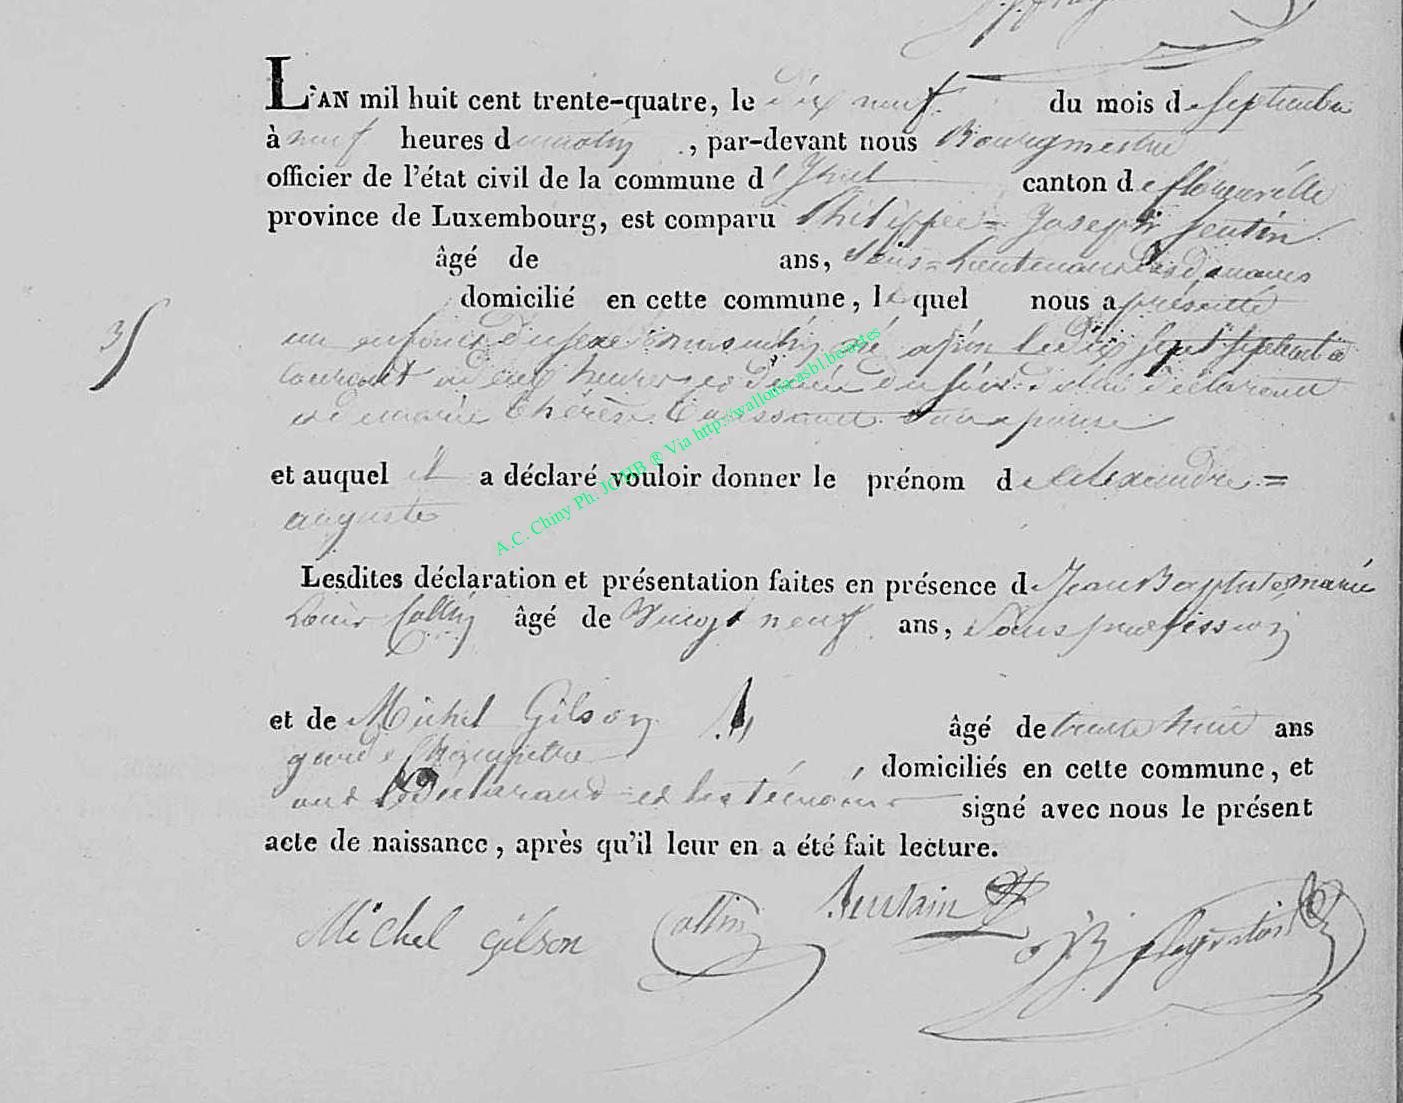 L'AN mil huit cent trente-quatre, le dix neuf du mois de Septembre
à neuf heures du matin, par-devant nous Bourgmestre
officier de l'état civil de la commune d' canton de florenville
province de Luxembourg, est comparu Philippe = Joseph
âgé de ans, Sous = Lieutenant des douanes
domicilié en cette commune, lequel nous a présenté
un enfant du sexe masculin né le dix sept Septembre
courant à heures et demie du soir de lui déclarant
et de marie thérèse son épouse
et auquel il a déclaré vouloir donner le prénom de alexandre =
auguste
Lesdites déclaration et présentation faites en présence de Jean Baptiste marie
Louis Collin âgé de Vingt neuf ans, Sans profession
et de Michel Gilson âgé de trente huit ans
garde Champêtre
, domiciliés en cette commune, et
ont le déclarant et les témoins signé avec nous le présent
acte de naissance, après qu'il leur en a été fait lecture.
Michel gilson Collin
A.C. Chiny Ph. JOHB ® Via http://wallonia-asbl.be/actes